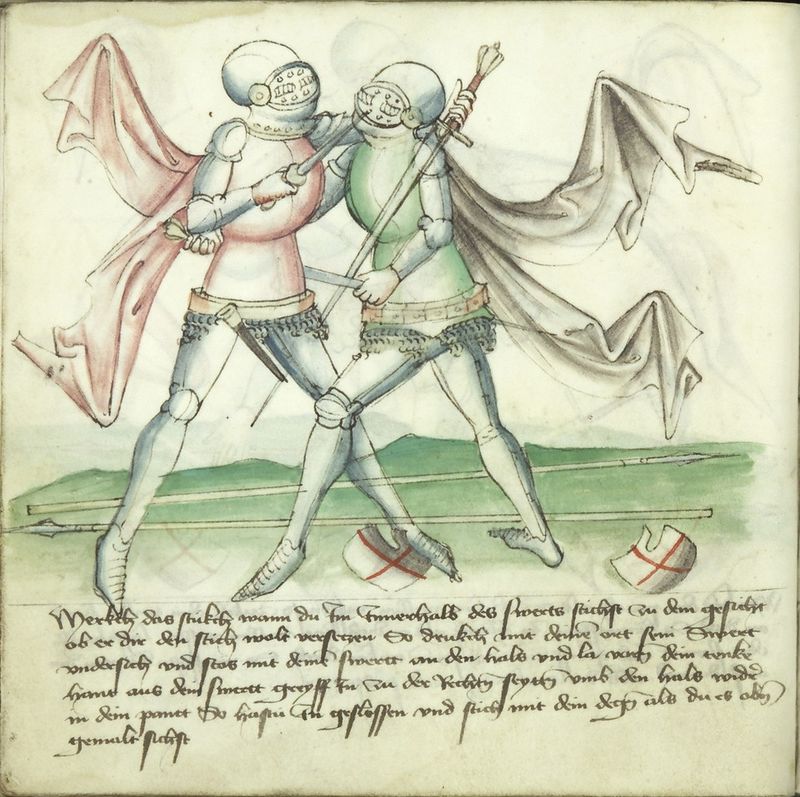 Merckh das stukch wann du Im Innerhalb des swerts stichst zu dem gesicht
ob er dir den stich wolt versetzen So drukch mit deinē ort sein Swert
undersich und stos mit deinē swertt an den hals und la varn dein tenke
hant aus dein swertt greyff In zu der Rechtn seyttn umb den hals wider
in dein pantt So hastu In geslossen und stich mit dein degn als du es obn
gemalt sichst